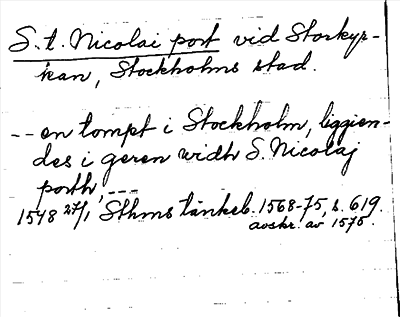 S. t. Nicolai port vid Storkyr-
kan, Stockholms stad.
-- en tompt i Stockholm, liggien-
des i geren widh S. Nicolaj
porth, ----
1548 27/1 Sthms tänkeb. 1568-75, s. 619.
avskr. av 1575.